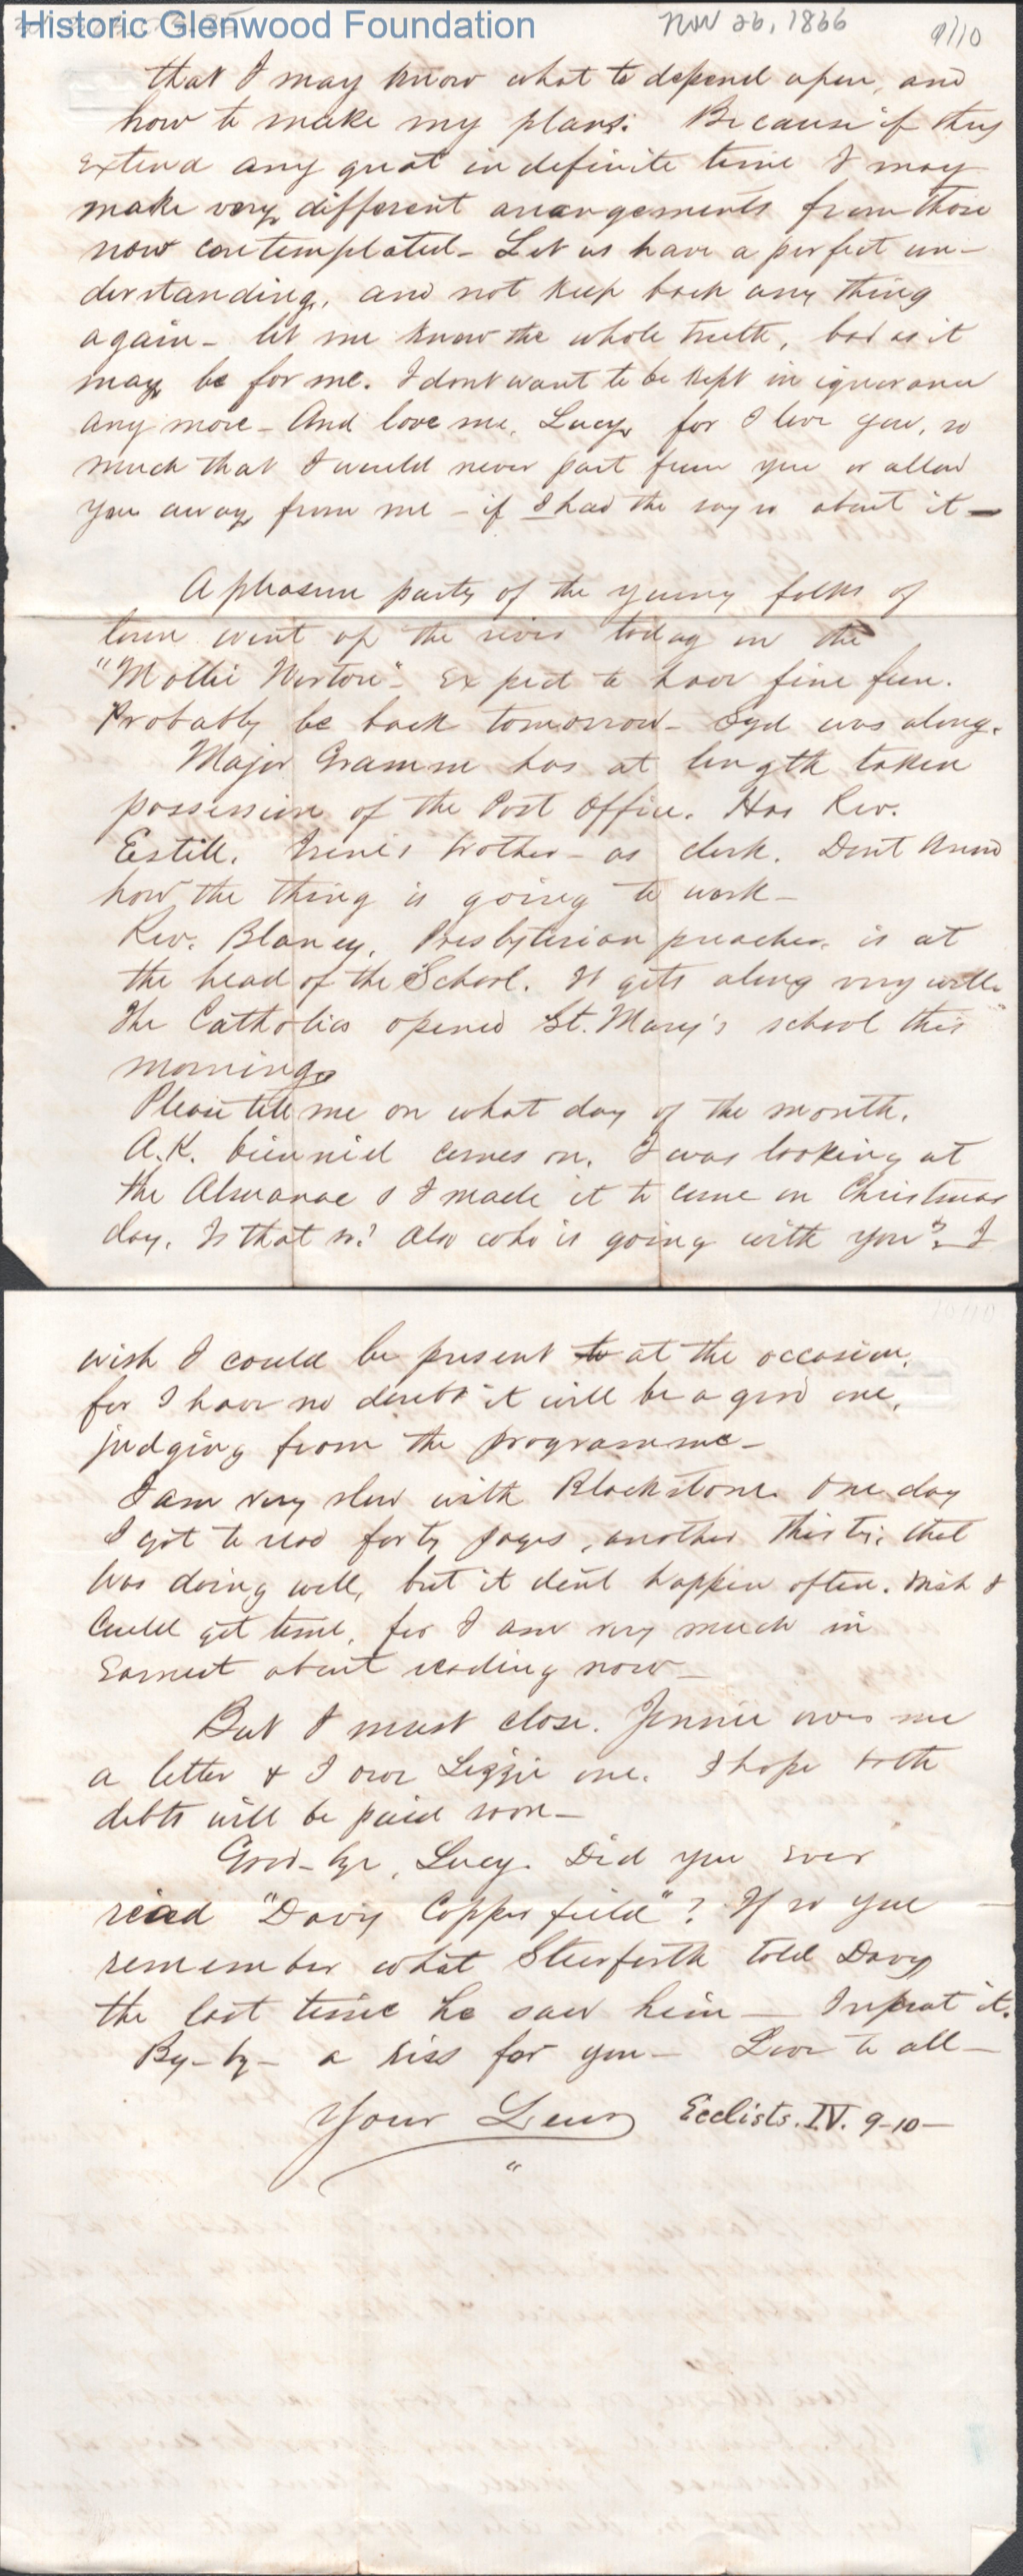 Historic Glenwood Foundation
Nov 26, 1866
9/10
that I may know what to depend upon, and
how to make my plans. Because if they
extend any great indefinite time I may
make very different arrangements from those
now contemplated - Let us have a perfect un-
derstanding, and not keep back any thing
again - let me know the whole truth, bad as it
may be for me. I dont want to be kept in ignorance
any more - And love me, Lucy, for I love you, so
much that I would never part from you or allow
you away from me - if I had the say so about it -
A pleasure party of the young folks of
town went up the river today in the
"Mollie Norton" - Expect to have fine fun.
Probably be back tomorrow - Syd was along.
Major Gramm has at length taken
possession of the Post Office. Has Rev.
Estill, Irene's brother - as clerk. Dont know
how the thing is going to work -
Rev. Blaney, Presbyterian preacher, is at
the head of the School. It gets along very well.
The Catholics opened St. Mary's school this
morning.
Please tell me on what day of the month,
A.K. biennial comes on. I was looking at
the Almanac & I made it to come on Christmas
day. Is that so? Also who is going with you? I
wish I could be present to at the occasion,
for I have no doubt it will be a good one,
judging from the programme -
I am very slow with Blackstone. One day
I got to read forty pages, another thirty, that
was doing well, but it dont happen often. Wish I
could get time, for I am very much in
earnest about reading now -
But I must close. Jennie owes me
a letter & I owe Lizzie one. I hope both
debts will be paid soon -
Good-bye, Lucy. Did you ever
read "Davy Copperfield"? If so you
remember what Steerforth told Davy
the last time he saw him - I repeat it.
By-by - a kiss for you - Love to all -
Your Lew Ecclists. IV. 9-10 -